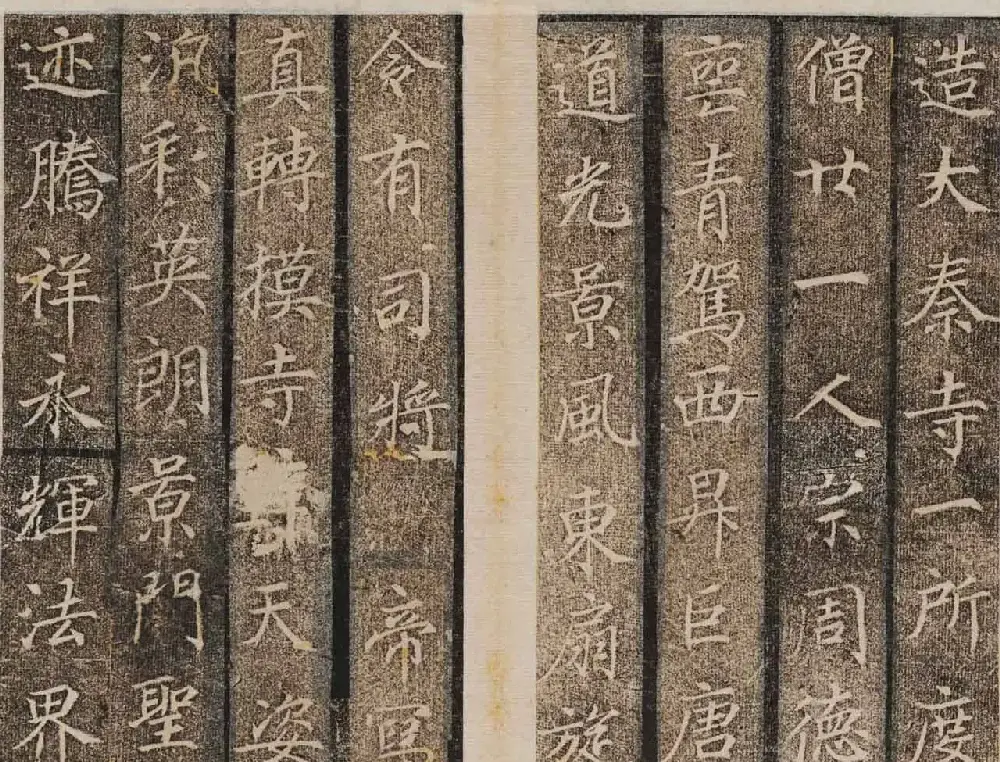 造大秦寺一所度
僧廿一人宗周德
喪青駕西昇巨唐
道光景風東扇旋
令有司將帝寫
真轉摸寺天姿
汎彩英朗景門聖
迹騰祥永輝法界